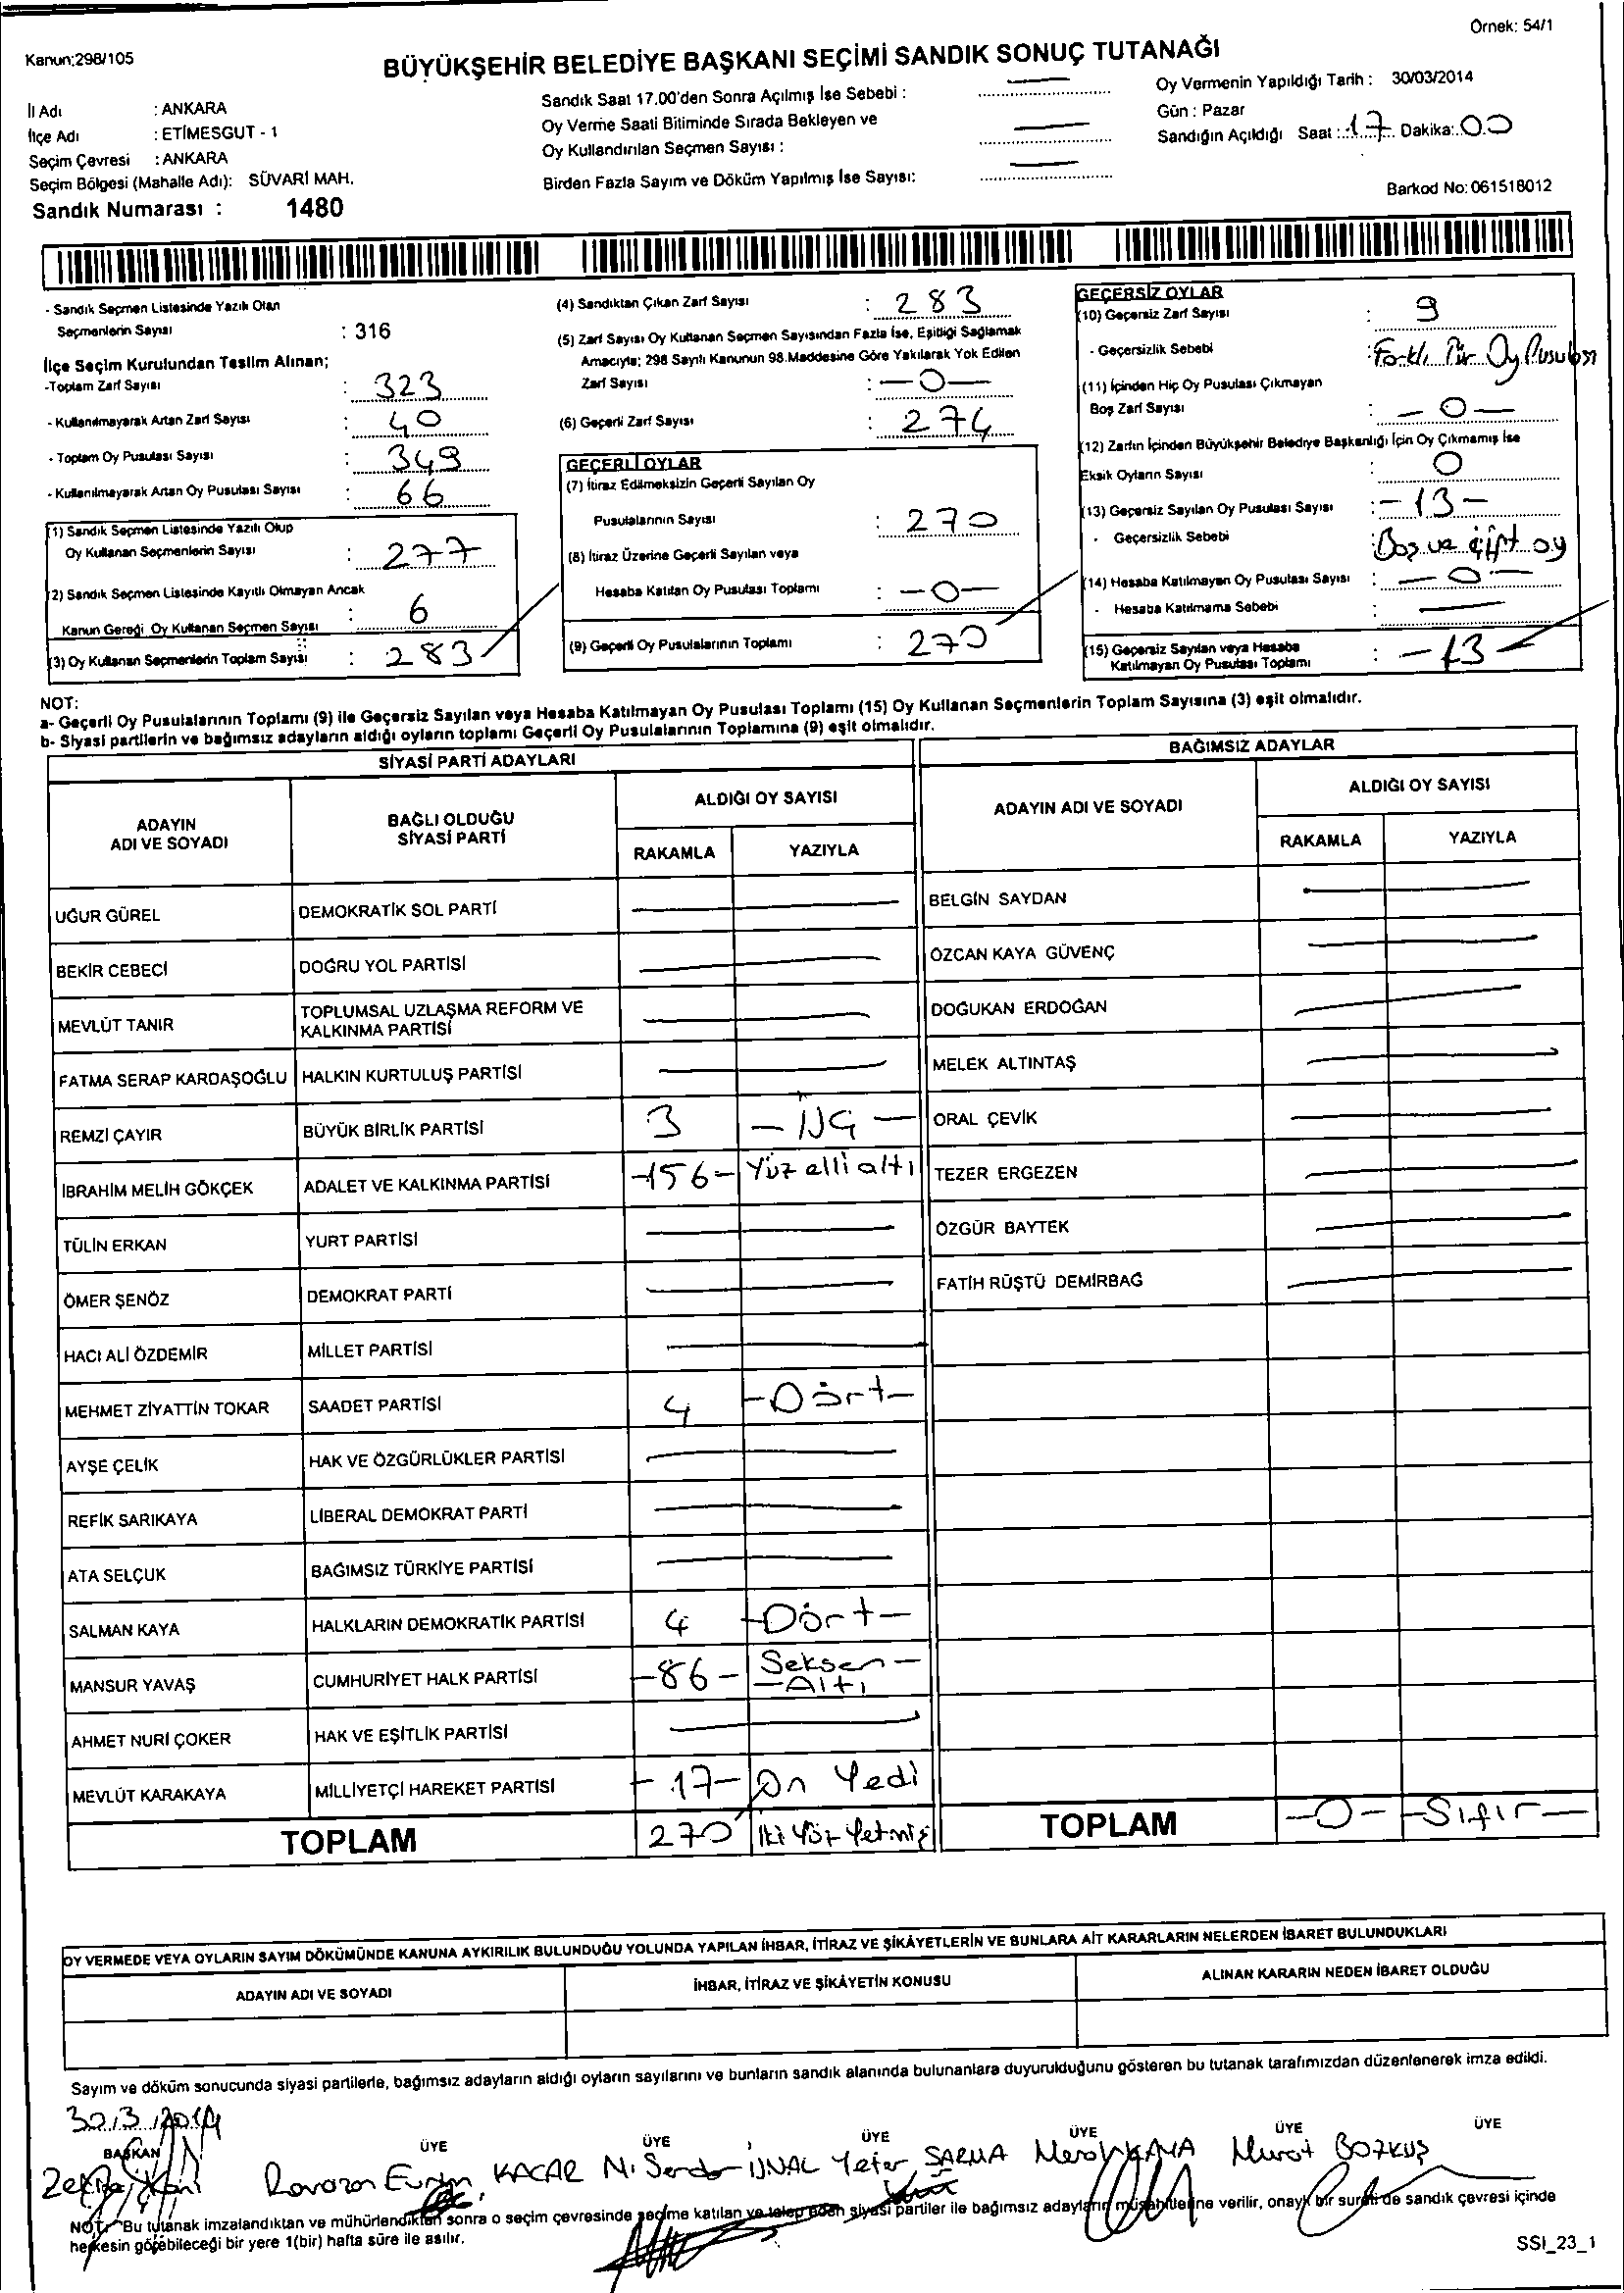 Örnek: 54/1
Kanun:298/105
BÜYÜKŞEHİR BELEDİYE BAŞKANI SEÇİMİ SANDIK SONUÇ TUTANAĞI
İl Adı : ANKARA
İlçe Adı : ETİMESGUT - 1
Seçim Çevresi : ANKARA
Seçim Bölgesi (Mahalle Adı): SÜVARİ MAH.
Sandık Numarası : 1480
Sandık Saat 17.00'den Sonra Açılmış İse Sebebi :
Oy Verme Saati Bitiminde Sırada Bekleyen ve
Oy Kullandırılan Seçmen Sayısı :
Birden Fazla Sayım ve Döküm Yapılmış İse Sayısı:
Oy Vermenin Yapıldığı Tarih : 30/03/2014
Gün : Pazar
Sandığın Açıldığı Saat : 17 Dakika: 00
Barkod No: 061518012
- Sandık Seçmen Listesinde Yazılı Olan
Seçmenlerin Sayısı : 316
İlçe Seçim Kurulundan Teslim Alınan;
-Toplam Zarf Sayısı : 323
- Kullanılmayarak Artan Zarf Sayısı : 40
- Toplam Oy Pusulası Sayısı : 349
- Kullanılmayarak Artan Oy Pusulası Sayısı : 66
(1) Sandık Seçmen Listesinde Yazılı Olup
Oy Kullanan Seçmenlerin Sayısı : 277
(2) Sandık Seçmen Listesinde Kayıtlı Olmayan Ancak
Kanun Gereği Oy Kullanan Seçmen Sayısı : 6
(3) Oy Kullanan Seçmenlerin Toplam Sayısı : 283
(4) Sandıktan Çıkan Zarf Sayısı : 283
(5) Zarf Sayısı Oy Kullanan Seçmen Sayısından Fazla İse, Eşitliği Sağlamak
Amacıyla; 298 Sayılı Kanunun 98.Maddesine Göre Yakılarak Yok Edilen
Zarf Sayısı : -0-
(6) Geçerli Zarf Sayısı : 274
GEÇERLİ OYLAR
(7) İtiraz Edilmeksizin Geçerli Sayılan Oy
Pusulalarının Sayısı : 270
(8) İtiraz Üzerine Geçerli Sayılan veya
Hesaba Katılan Oy Pusulası Toplamı : -0-
(9) Geçerli Oy Pusulalarının Toplamı : 270
GEÇERSİZ OYLAR
(10) Geçersiz Zarf Sayısı : 9
- Geçersizlik Sebebi : Farklı Tür Oy Pusulası
(11) İçinden Hiç Oy Pusulası Çıkmayan
Boş Zarf Sayısı : -0-
(12) Zarfın İçinden Büyükşehir Belediye Başkanlığı İçin Oy Çıkmamış İse
Eksik Oyların Sayısı : 0
(13) Geçersiz Sayılan Oy Pusulası Sayısı : -13-
- Geçersizlik Sebebi : Boş ve çift oy
(14) Hesaba Katılmayan Oy Pusulası Sayısı : -0-
- Hesaba Katılmama Sebebi :
(15) Geçersiz Sayılan veya Hesaba
Katılmayan Oy Pusulası Toplamı : -13
NOT:
a- Geçerli Oy Pusulalarının Toplamı (9) ile Geçersiz Sayılan veya Hesaba Katılmayan Oy Pusulası Toplamı (15) Oy Kullanan Seçmenlerin Toplam Sayısına (3) eşit olmalıdır.
b- Siyasi partilerin ve bağımsız adayların aldığı oyların toplamı Geçerli Oy Pusulalarının Toplamına (9) eşit olmalıdır.
SİYASİ PARTİ ADAYLARI
ADAYIN ADI VE SOYADI
BAĞLI OLDUĞU SİYASİ PARTİ
ALDIĞI OY SAYISI
RAKAMLA YAZIYLA
UĞUR GÜREL DEMOKRATİK SOL PARTİ
BEKİR CEBECİ DOĞRU YOL PARTİSİ
MEVLÜT TANIR TOPLUMSAL UZLAŞMA REFORM VE KALKINMA PARTİSİ
FATMA SERAP KARDAŞOĞLU HALKIN KURTULUŞ PARTİSİ
REMZİ ÇAYIR BÜYÜK BİRLİK PARTİSİ 3 - ÜÇ -
İBRAHİM MELİH GÖKÇEK ADALET VE KALKINMA PARTİSİ -156- Yüz elli altı
TÜLİN ERKAN YURT PARTİSİ
ÖMER ŞENÖZ DEMOKRAT PARTİ
HACI ALİ ÖZDEMİR MİLLET PARTİSİ
MEHMET ZİYATTİN TOKAR SAADET PARTİSİ 4 -Dört-
AYŞE ÇELİK HAK VE ÖZGÜRLÜKLER PARTİSİ
REFİK SARIKAYA LİBERAL DEMOKRAT PARTİ
ATA SELÇUK BAĞIMSIZ TÜRKİYE PARTİSİ
SALMAN KAYA HALKLARIN DEMOKRATİK PARTİSİ 4 -Dört-
MANSUR YAVAŞ CUMHURİYET HALK PARTİSİ -86- Seksen- -Altı
AHMET NURİ ÇOKER HAK VE EŞİTLİK PARTİSİ
MEVLÜT KARAKAYA MİLLİYETÇİ HAREKET PARTİSİ -17- On Yedi
TOPLAM 270 İki Yüz Yetmiş
BAĞIMSIZ ADAYLAR
ADAYIN ADI VE SOYADI
ALDIĞI OY SAYISI
RAKAMLA YAZIYLA
BELGİN SAYDAN
ÖZCAN KAYA GÜVENÇ
DOĞUKAN ERDOĞAN
MELEK ALTINTAŞ
ORAL ÇEVİK
TEZER ERGEZEN
ÖZGÜR BAYTEK
FATİH RÜŞTÜ DEMİRBAĞ
TOPLAM -0- -Sıfır-
OY VERMEDE VEYA OYLARIN SAYIM DÖKÜMÜNDE KANUNA AYKIRILIK BULUNDUĞU YOLUNDA YAPILAN İHBAR, İTİRAZ VE ŞİKÂYETLERİN VE BUNLARA AİT KARARLARIN NELERDEN İBARET BULUNDUKLARI
ADAYIN ADI VE SOYADI
İHBAR, İTİRAZ VE ŞİKÂYETİN KONUSU
ALINAN KARARIN NEDEN İBARET OLDUĞU
Sayım ve döküm sonucunda siyasi partilerle, bağımsız adayların aldığı oyların sayılarını ve bunların sandık alanında bulunanlara duyurulduğunu gösteren bu tutanak tarafımızdan düzenlenerek imza edildi.
30/3/2014
BAŞKAN ÜYE ÜYE ÜYE ÜYE ÜYE ÜYE
KACAR ÜNAL Yeter SARNA KAYA Murat BOZKUŞ
NOT: Bu tutanak imzalandıktan ve mühürlendikten sonra o seçim çevresinde seçime katılan ve talep eden siyasi partiler ile bağımsız adayların müşahitlerine verilir, onaylı bir sureti de sandık çevresi içinde
herkesin görebileceği bir yere 1(bir) hafta süre ile asılır.
SSI_23_1